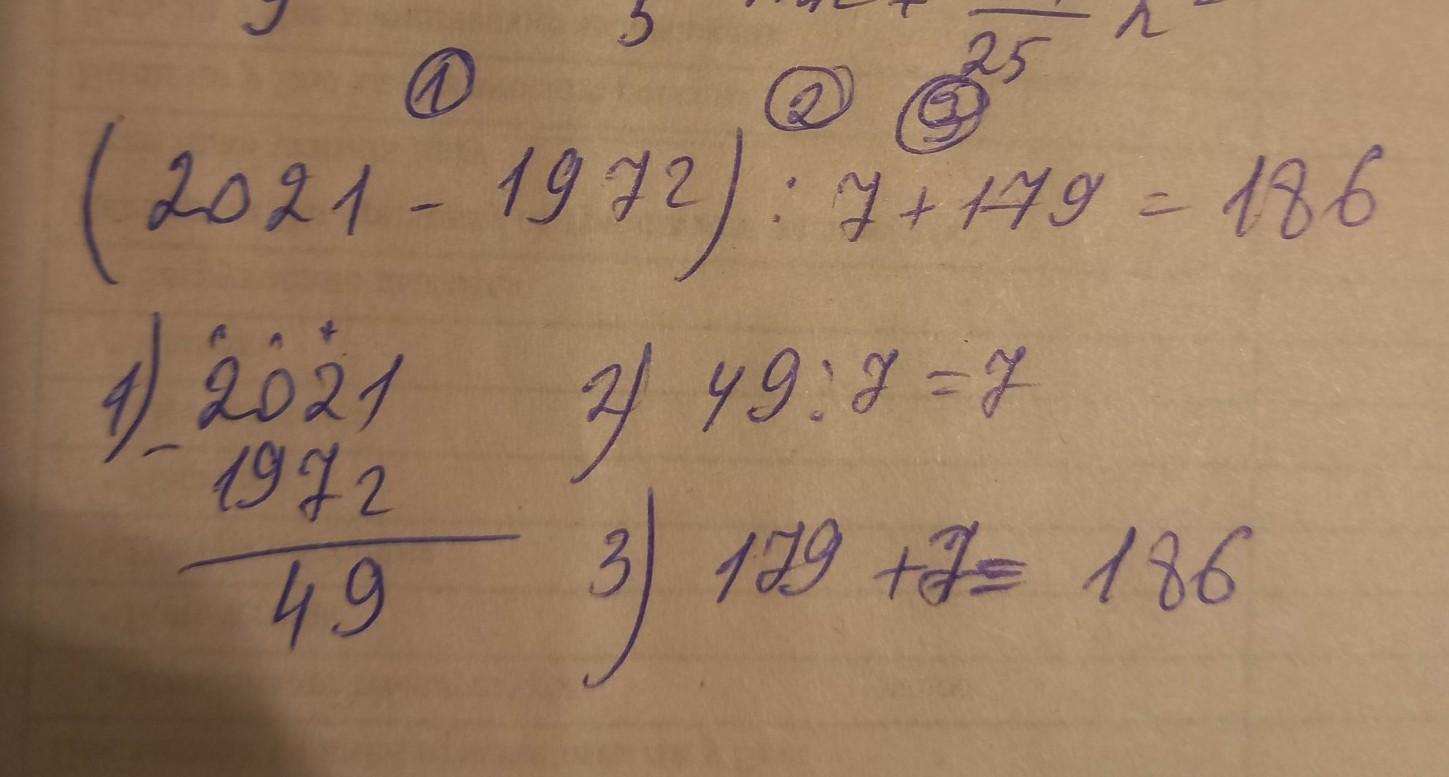 25
① ② ③
(2021 - 1972) : 7 + 179 = 186
1) - 2021 2) 49 : 7 = 7
1972
49 3) 179 + 7 = 186